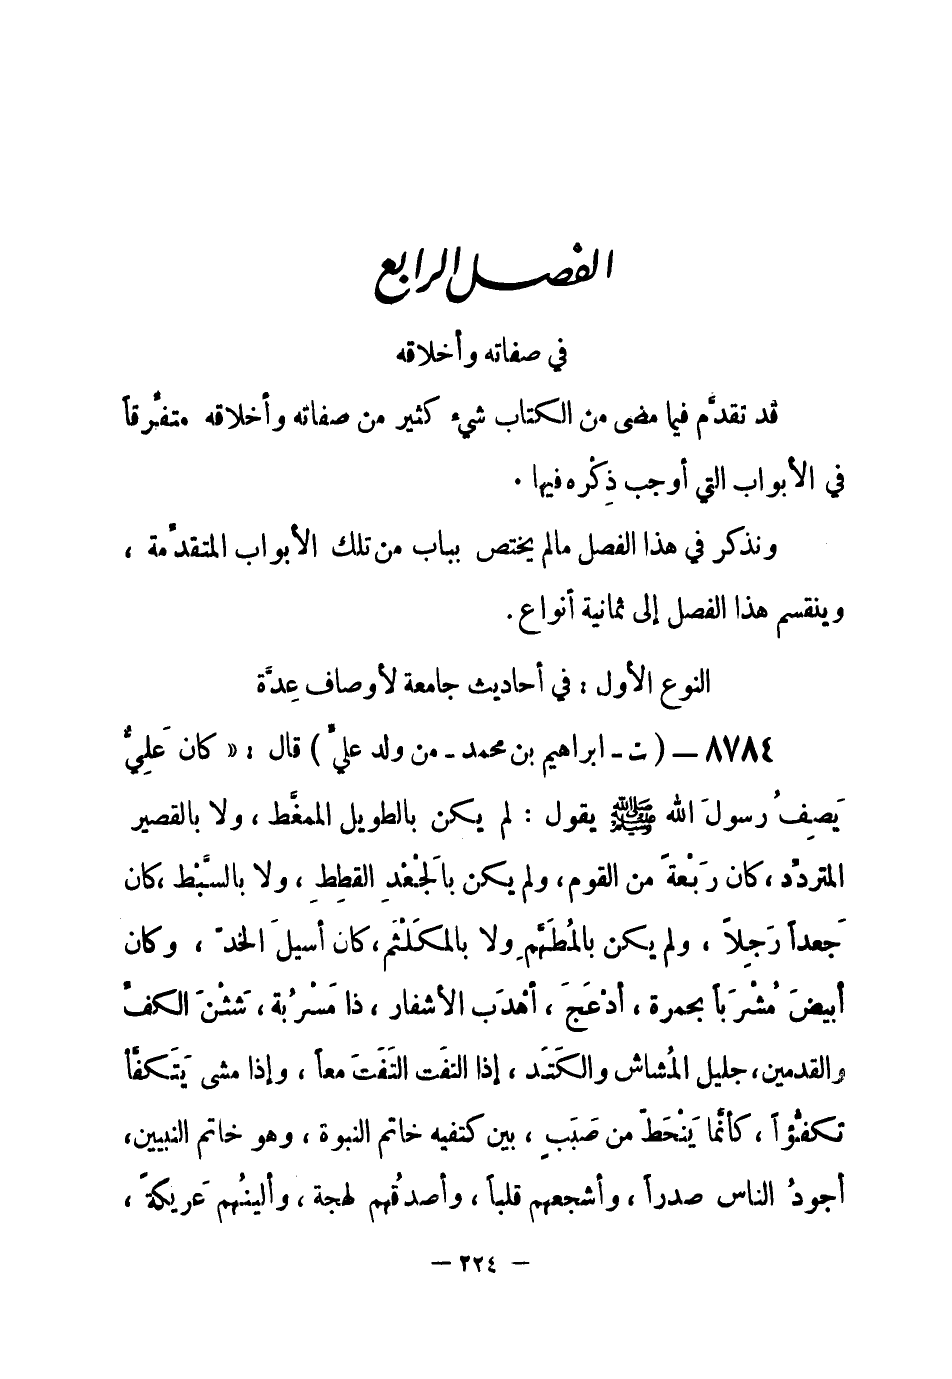 الفصل الرابع
في صفاته وأخلاقه
قد تقدَّم فيما مضى من الكتاب شيء كثير من صفاته وأخلاقه متفرِّقاً
في الأبواب التي أوجب ذِكْره فيها .
ونذكر في هذا الفصل مالم يختص بباب من تلك الأبواب المتقدّمة ،
وينقسم هذا الفصل إلى ثمانية أنواع .
النوع الأول : في أحاديث جامعة لأوصاف عِدَّة
٨٧٨٤ – ( ت - ابراهيم بن محمد - من ولد عليّ ) قال : « كان عَلِيٌّ
يَصِفُ رسولَ الله ﷺ يقول : لم يكن بالطويل الممغَّط ، ولا بالقصير
المتردِّد ، كان رَبْعةً من القوم ، ولم يكن بالَجْعْدِ القطِطِ ، ولا بالسَّبْط ، كان
جَعداً رَجِلاً ، ولم يكن بالمُطَهَّم ولا بالمكَلْثَم ، كان أسيلَ الخدّ ، وكان
أبيضَ مُشْرَباً بحمرة ، أدْعَجَ ، أهْدَب الأشفار ، ذا مَسْرُبة ، شَثْنَ الكفِّ
والقدمين ، جليل المُشاش والكَتَد ، إذا التفَت التَفَتَ معاً ، وإذا مشى يَتَكفَّأ
تكفُّؤاً ، كأنَّما يَنْحَطّ من صَبَبٍ ، بين كتفيه خاتم النبوة ، وهو خاتم النبيين ،
أجودُ الناس صدراً ، وأشجعهم قلباً ، وأصدقُهم لهجة ، وألينُهم عَريكةً ،
– ٢٢٤ –